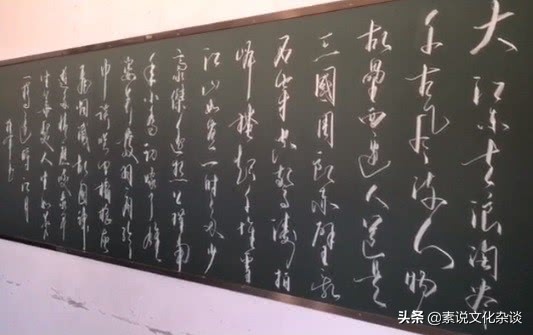 大江东去浪淘尽
千古风流人物
故壘西边人道是
三國周郎赤壁乱
石穿空驚涛拍
岸捲起千堆雪
江山如画一时多少
豪傑遥想公瑾当
年小乔初嫁了雄
姿英發羽扇綸
巾談笑间樯橹灰
飛烟滅故國神
遊多情應笑我早
生華髮人生如梦
一尊還酹江月
头条 @素说文化杂谈